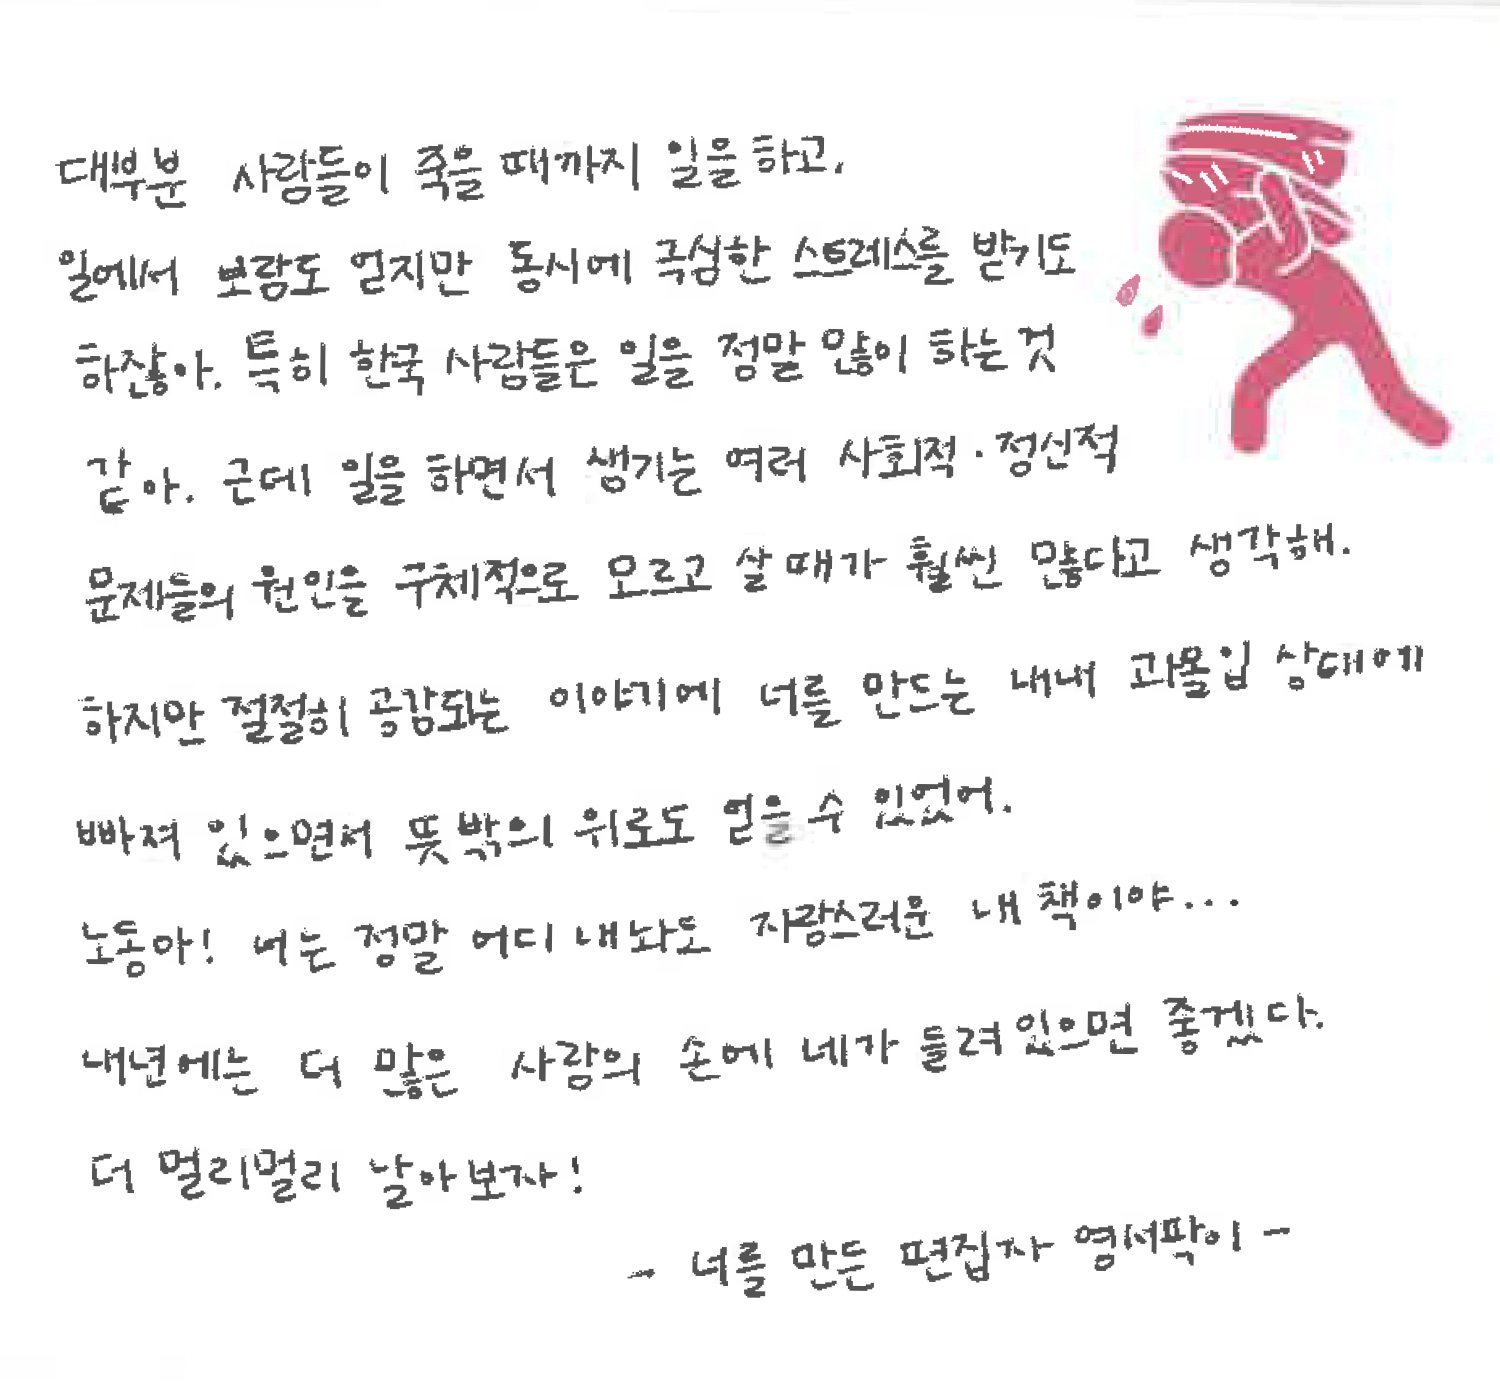 대부분 사람들이 죽을 때까지 일을 하고,
일에서 보람도 얻지만 동시에 극심한 스트레스를 받기도
하잖아. 특히 한국 사람들은 일을 정말 많이 하는 것
같아. 근데 일을 하면서 생기는 여러 사회적·정신적
문제들의 원인을 구체적으로 모르고 살 때가 훨씬 많다고 생각해.
하지만 절절히 공감되는 이야기에 너를 만드는 내내 과몰입 상태에
빠져 있으면서 뜻밖의 위로도 얻을 수 있었어.
노동아! 너는 정말 어디 내놔도 자랑스러운 내 책이야...
내년에는 더 많은 사람의 손에 네가 들려있으면 좋겠다.
더 멀리멀리 날아보자!
- 너를 만든 편집자 영서팍이 -